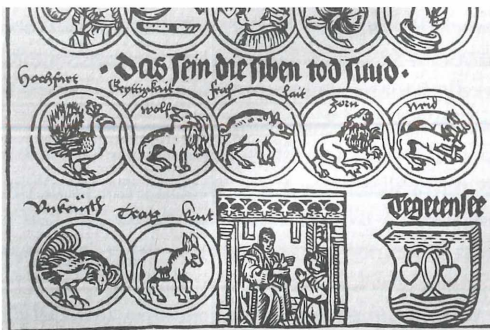 · Das sein die siben tod sund ·
Hochfart Geyttigkait wolf fraß hait zorn Neid
Vnkeüsch Trag hait
Tegerensee